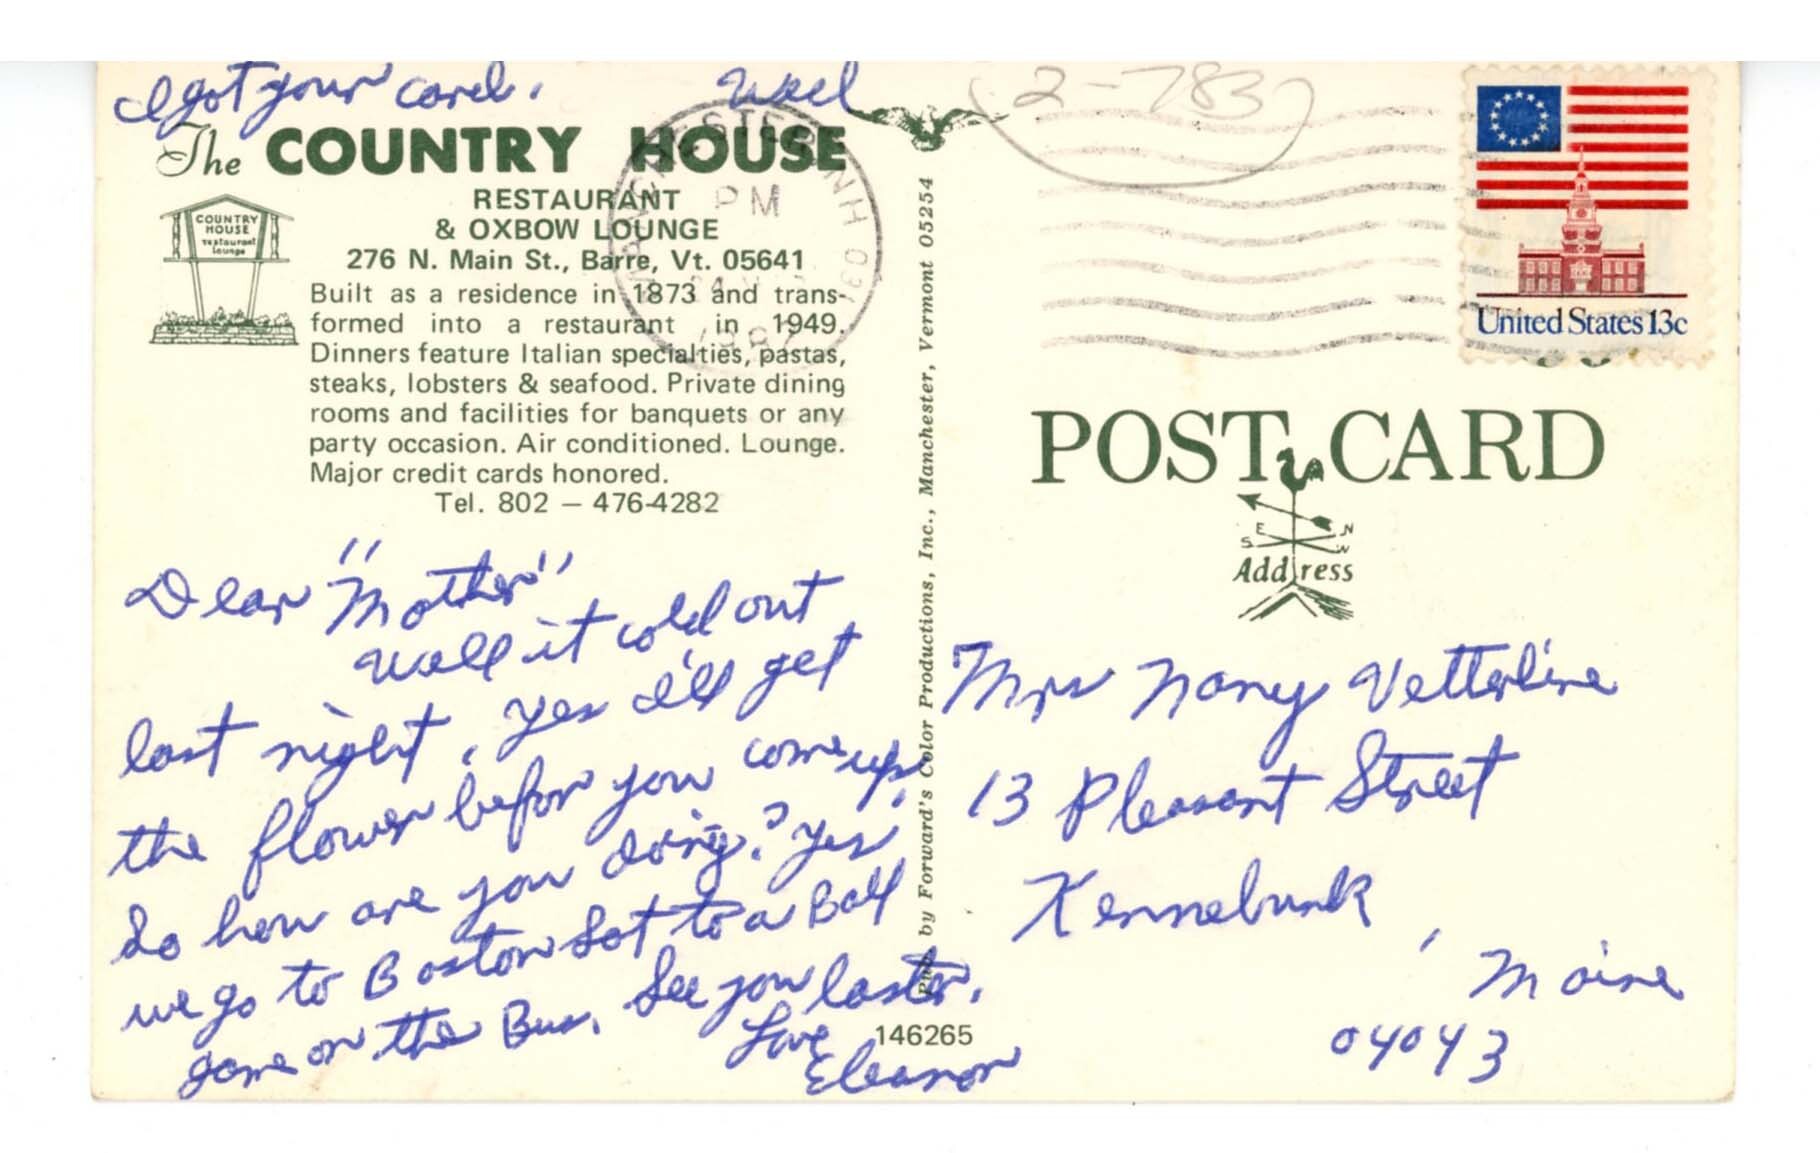 I got your card. Well
2-783
The COUNTRY HOUSE
RESTAURANT
& OXBOW LOUNGE
276 N. Main St., Barre, Vt. 05641
COUNTRY
HOUSE
restaurant
lounge
Built as a residence in 1873 and trans-
formed into a restaurant in 1949.
Dinners feature Italian specialties, pastas,
steaks, lobsters & seafood. Private dining
rooms and facilities for banquets or any
party occasion. Air conditioned. Lounge.
Major credit cards honored.
Tel. 802 — 476-4282
MANCHESTER NH 031
PM
United States 13c
Dear "Mother"
Well it cold out
last night. Yes I'll get
the flower befor you come up.
So how are you doing? Yes
we go to Boston Sat to a Ball
game on the Bus. See you laster.
Love
Eleanor
146265
Pub. by Forward's Color Productions, Inc., Manchester, Vermont 05254
POST CARD
E N
S W
Address
Mrs Nancy Vetterline
13 Pleasant Street
Kennebunk,
Maine
04043